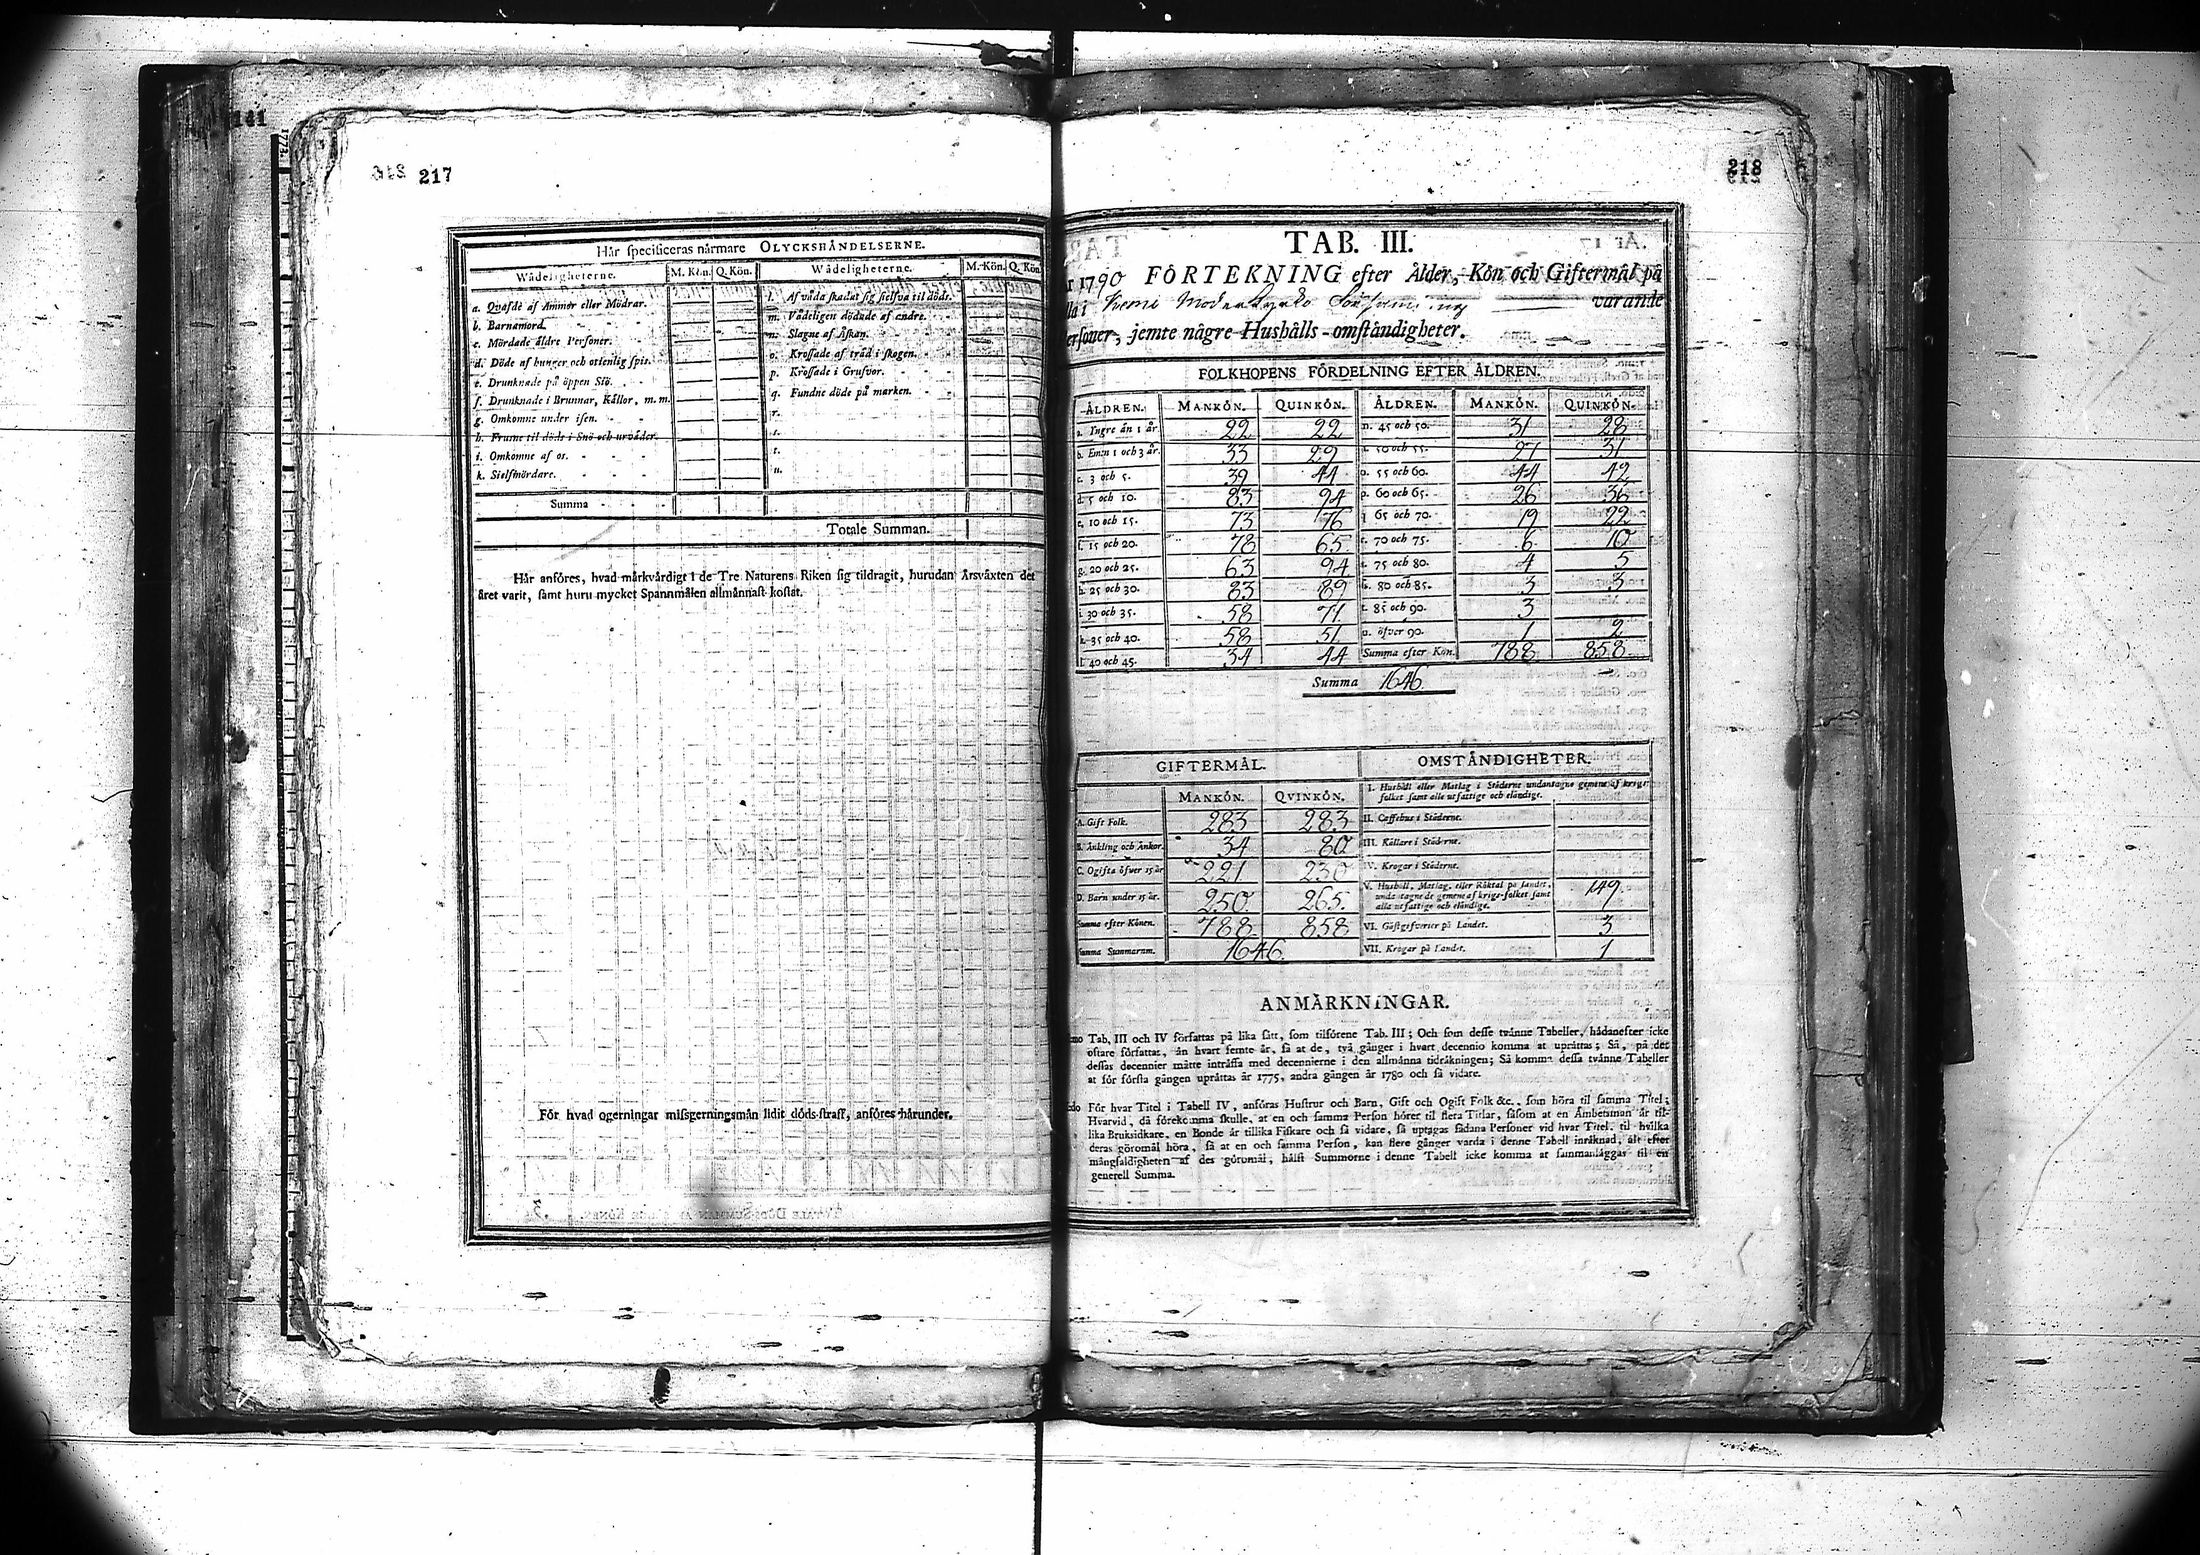 141
217
Här specificeras närmare OLYCKSHÄNDELSERNE.
Wådeligheterne. M. Kön. Q. Kön. Wådeligheterne. M. Kön. Q. Kön
a. Qvafde af Ammor eller Mödrar.
b. Barnamord.
c. Mördade äldre Personer.
d. Döde af hunger och otienlig spis.
e. Drunknade på öppen Siö.
f. Drunknade i Brunnar, Källor, m. m.
g. Omkomne under isen.
h. Frusne til döds i Snö och urväder.
i. Omkomne af os.
k. Sielfmördare.
l. Af våda skadat sig sielfva til döds.
m. Vådeligen dödade af andre.
n. Slagne af Åskan.
o. Krossade af träd i skogen.
p. Krossade i Grufvor.
q. Fundne döde på marken.
r.
s.
t.
u.
Summa
Totale Summan.
Här anföres, hvad märkvärdigt i de Tre Naturens Riken sig tildragit, hurudan Årsväxten det
året varit, samt huru mycket Spannmålen allmännast kostat.
För hvad ogerningar missgerningsmän lidit döds-straff, anföres härunder.
218
TAB. III.
1790 FÖRTEKNING efter Ålder, Kön och Giftermål på
Kemi Moderkyrko varande
Personer, jemte någre Hushålls-omständigheter.
FOLKHOPENS FÖRDELNING EFTER ÅLDREN.
ÅLDREN. MANKÖN. QUINKÖN. ÅLDREN. MANKÖN. QUINKÖN.
a. Yngre än 1 år 22 22 n. 45 och 50. 31 28
b. Emn 1 och 3 år. 33 29 50 och 55. 27 31
c. 3 och 5. 39 44 o. 55 och 60. 44 42
d. 5 och 10. 83 94 p. 60 och 65. 26 36
e. 10 och 15. 73 76 q 65 och 70. 19 22
f. 15 och 20. 78 65 r. 70 och 75. 6 10
g. 20 och 25. 63 94 75 och 80. 4 5
h. 25 och 30. 83 89 80 och 85. 3 3
i. 30 och 35. 58 71 85 och 90. 3
k. 35 och 40. 58 51 u. öfver 90. 1 2
l. 40 och 45. 34 44 Summa efter Kön. 788 858
Summa 1646.
GIFTERMÅL. OMSTÄNDIGHETER.
MANKÖN. QVINKÖN.
A. Gift Folk. 283 283
B. Änkling och Änkor. 34 80
C. Ogifta öfver 15 år 221 230
D. Barn under 15 år. 250 265
Summa efter Könen. 788 858
Summa Summarum. 1646.
I. Hushåll eller Matlag i Städerne undantagne gemene af krigs-
folket samt alle utfattige och eländige.
II. Caffehus i Städerne.
III. Källare i Städerne.
IV. Krogar i Städerne.
V. Hushåll, Matlag, eller Röktal på landet,
undantagne de gemene af krigs-folket samt
alla utfattige och eländige. 149.
VI. Gästgifverier på Landet. 3
VII. Krogar på Landet. 1
ANMÄRKNINGAR.
mo Tab. III och IV författas på lika sätt, som tilförene Tab. III; Och som desse tvänne Tabeller, hädanefter icke
oftare författas, än hvart femte år, så at de, två gånger i hvart decennio komma at uprättas; Så, på det
dessas decennier måtte inträffa med decennierne i den allmänna tidräkningen; Så komma dessa tvänne Tabeller
at för första gången uprättas år 1775, andra gången år 1780 och så vidare.
do För hvar Titel i Tabell IV, anföras Hustrur och Barn, Gift och Ogift Folk &c., som höra til samma Titel;
Hvarvid, då förekomma skulle, at en och samma Person hörer til flera Titlar, såsom at en Ämbetsman är til-
lika Bruksidkare, en Bonde är tillika Fiskare och så vidare, så uptagas sådana Personer vid hvar Titel, til hvilka
deras göromål höra, så at en och samma Person, kan flere gånger varda i denne Tabell inräknad, alt efter
mångfaldigheten af des göromål, hälst Summorne i denne Tabell icke komma at sammanläggas til en
generell Summa.